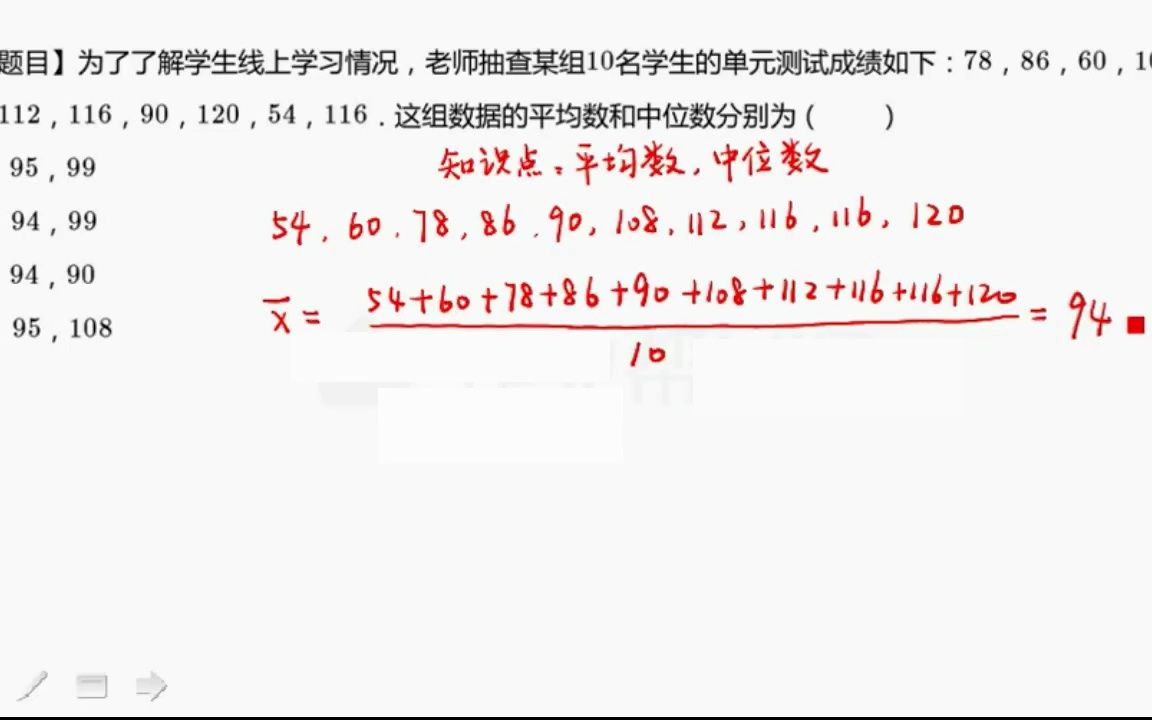 题目】为了了解学生线上学习情况，老师抽查某组10名学生的单元测试成绩如下：78，86，60，10
112，116，90，120，54，116．这组数据的平均数和中位数分别为（　　）
知识点：平均数，中位数
95，99
94，99
94，90
95，108
54，60，78，86，90，108，112，116，116，120
x̄ = (54+60+78+86+90+108+112+116+116+120)/10 = 94